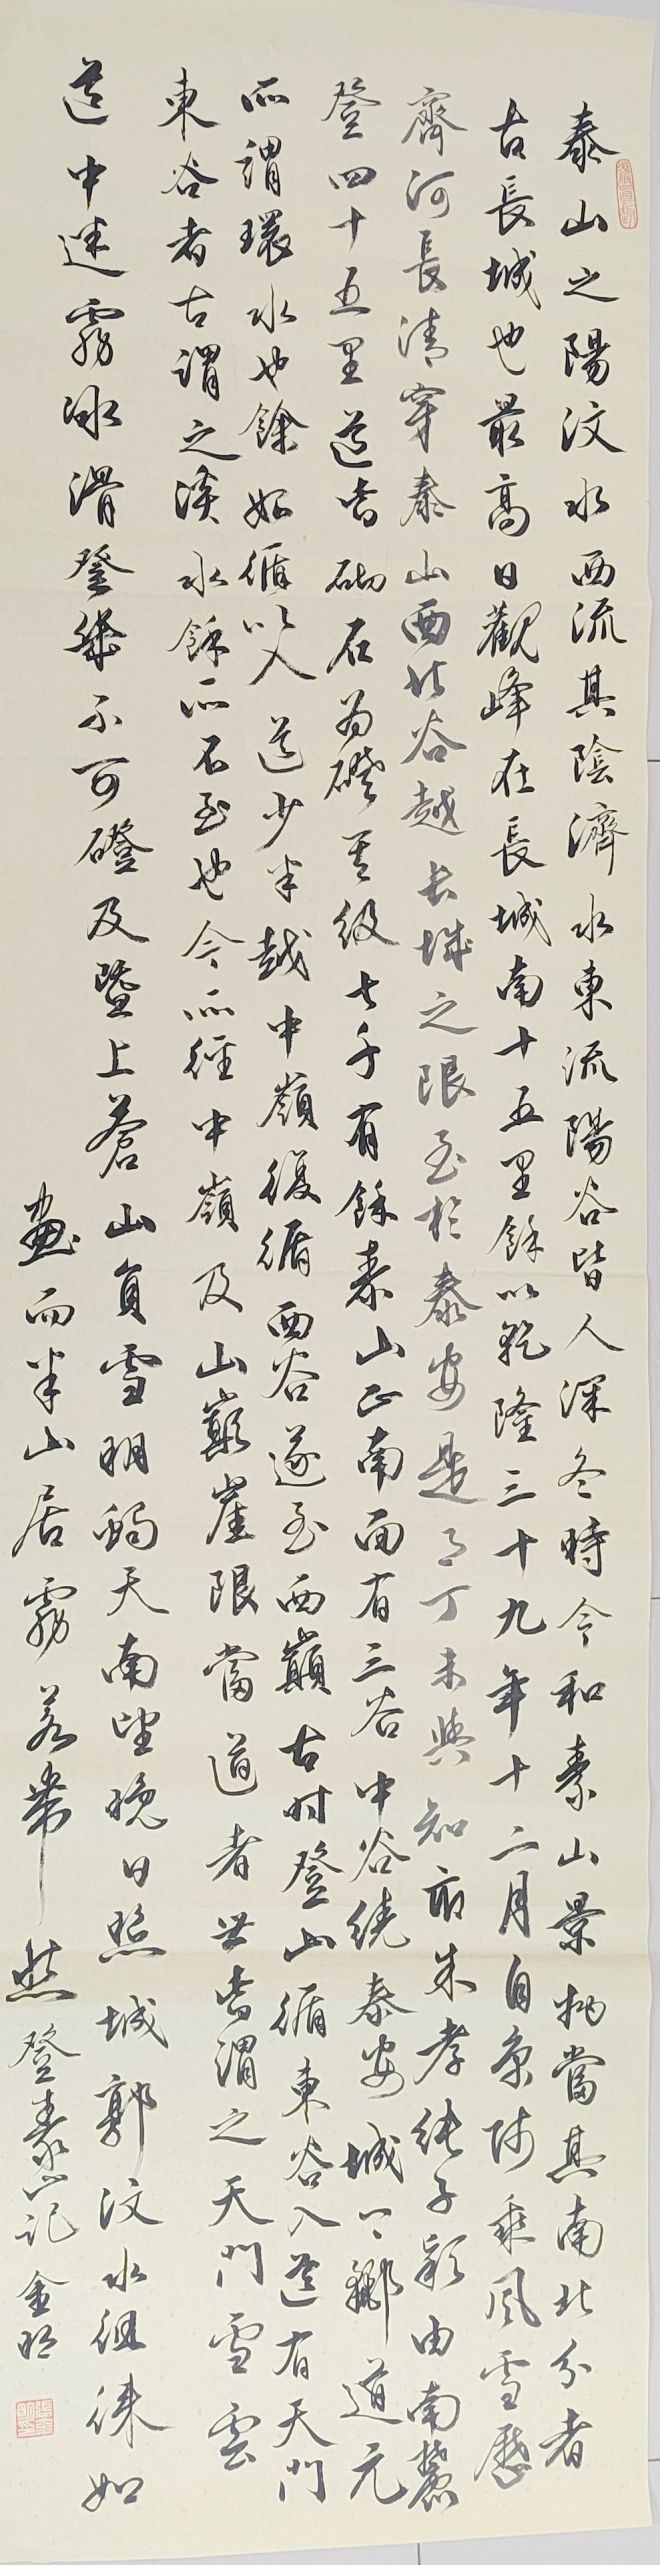 泰山之陽汶水西流其陰濟水東流陽谷皆人深冬時令和泰山景物當其南北分者
古長城也最高日觀峰在長城南十五里餘以乾隆三十九年十二月自京師乘風雪歷
齊河長清穿泰山西北谷越長城之限至於泰安是月丁未與知府朱孝純子潁由南麓
登四十五里道皆砌石為磴其級七千有餘泰山正南面有三谷中谷繞泰安城下酈道元
所謂環水也餘始循以入道少半越中嶺復循西谷遂至西巔古時登山循東谷入道有天門
東谷者古謂之溪水餘所不至也今所經中嶺及山巔崖限當道者世皆謂之天門雪雲
道中迷霧冰滑登幾不可磴及暨上蒼山負雪明燭天南望晚日照城郭汶水徂徠如
畫而半山居霧若帶然登泰山記金明